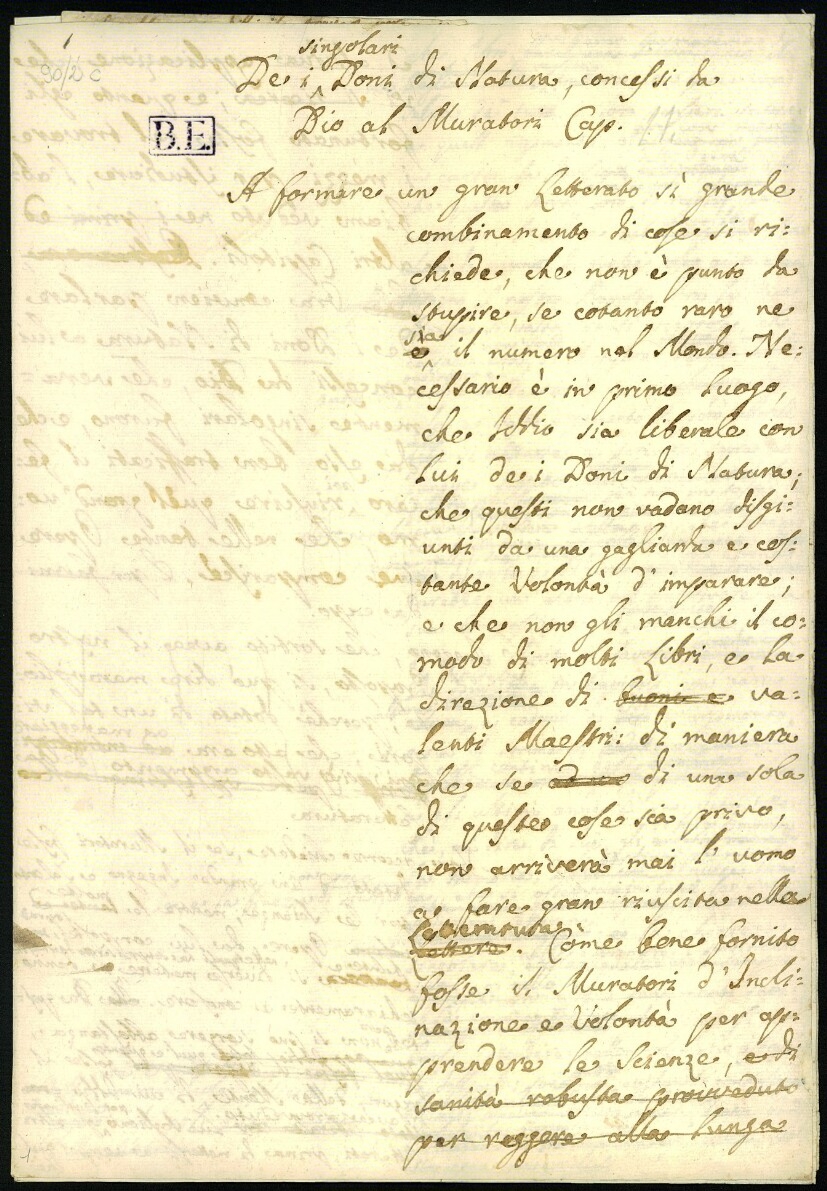 1
90/2 c
singolari
De i Doni di Natura, concessi da
Dio al Muratori Cap. 11.
B.E.
A formare un gran Letterato sì grande
combinamento di cose si ri=
chiede, che non è punto da
stupire, se cotanto raro ne
sia
è il numero nel Mondo. Ne=
cessario è in primo luogo,
che Iddio sia liberale con
lui de i Doni di Natura;
che questi non vadano disgi=
unti da una gagliarda e cos=
tante Volontà d'imparare;
e che non gli manchi il co=
modo di molti Libri, e la
direzione di buoni e va=
lenti Maestri: di maniera
che se ad un di una sola
di queste cose sia privo,
non arriverà mai l'uomo
a fare gran riuscita nella
Letteratura
Lettere. Come bene fornito
fosse il Muratori d'Incli=
nazione e Volontà per ap=
prendere le Scienze, e di
sanità robusta provveduto
per reggere alla lunga
1